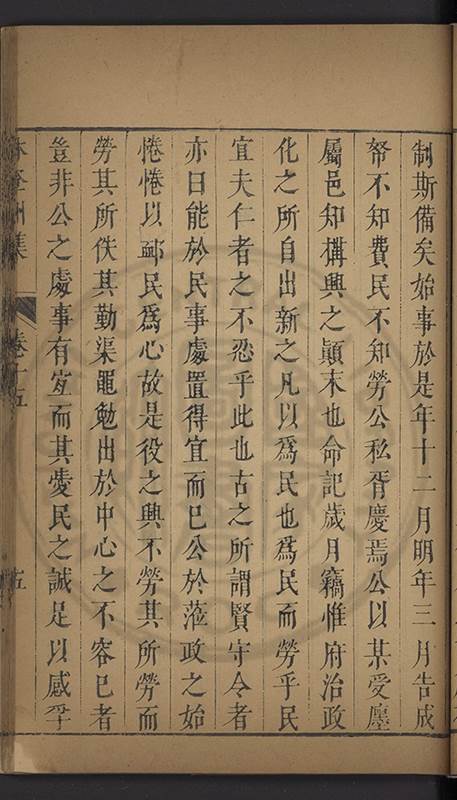 制斯備矣始事於是年十二月明年三月告成
帑不知費民不知勞公私胥慶焉公以某受廛
屬邑知搆興之顛末也命記歲月竊惟府治政
化之所自出新之凡以爲民也爲民而勞乎民
宜夫仁者之不忍乎此也古之所謂賢守令者
亦曰能於民事處置得宜而已公於蒞政之始
惓惓以䘏民爲心故是役之興不勞其所勞而
勞其所佚其勤渠黽勉出於中心之不容已者
豈非公之處事有宜而其愛民之誠足以感孚
集 卷十五 五